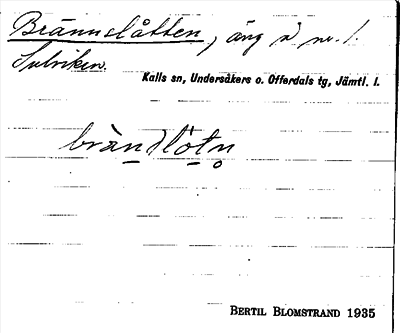 Brännslåtten, äng å nr. 1.
Sulviken.
Kalls sn, Undersåkers o. Offerdals tg, Jämtl. l.
bràn slòtn
BERTIL BLOMSTRAND 1935